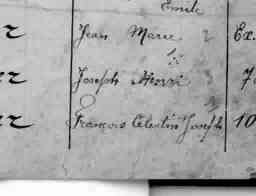 Emile
Jean Marie 2 Ex.
Joseph Henri 3 7
François Célestin Joseph 10